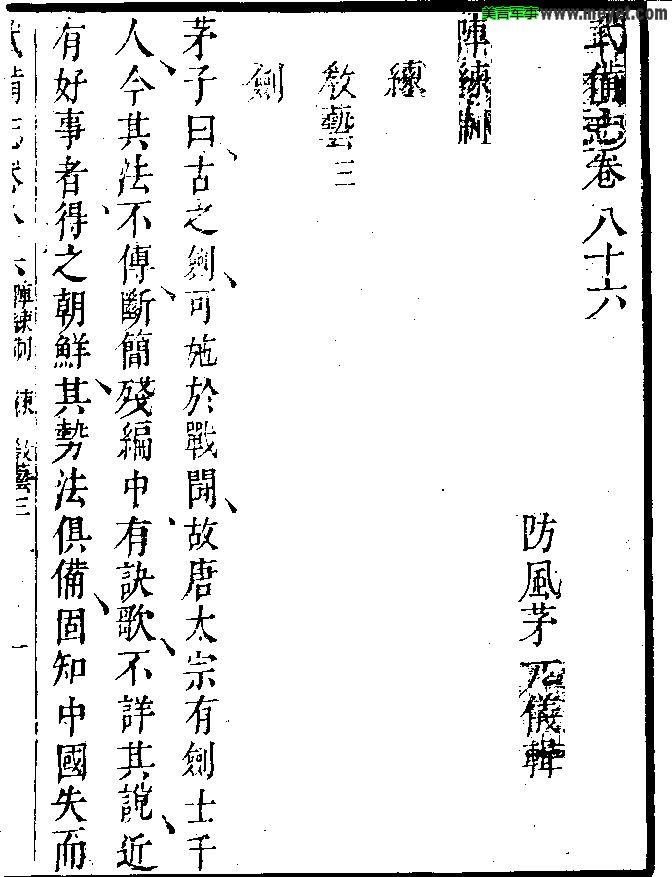 美言军事 www.meyet.com
武備志卷八十六
防風茅元儀輯
陣練制
練
教藝三
劍
茅子曰古之劍可施於戰鬪故唐太宗有劍士千
人今其法不傳斷簡殘編中有訣歌不詳其說近
有好事者得之朝鮮其勢法俱備固知中國失而
武備志卷八十六 陣練制 練 教藝三 一